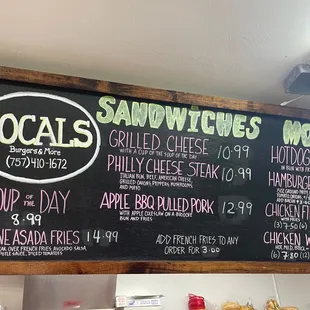 OCALS
Burgers & More
(757) 410-1672
OUP OF THE DAY
3.99
NE ASADA FRIES 14.99
SANDWICHES
GRILLED CHEESE 10.99
WITH A CUP OF THE SOUP OF THE DAY
PHILLY CHEESE STEAK 10.99
ITALIAN BUN, BEEF, AMERICAN CHEESE
GRILLED ONIONS, PEPPERS, MUSHROOMS
AND MAYO
APPLE BBQ PULLED PORK 12.99
WITH APPLE COLESLAW ON A BRIOCHE
BUN AND FRIES
ADD FRENCH FRIES TO ANY
ORDER FOR 3.00
MO
HOTDOG
HAMBURG
CHICKEN F
(3) 7.50 (
CHICKEN W
(6) 7.80 (12